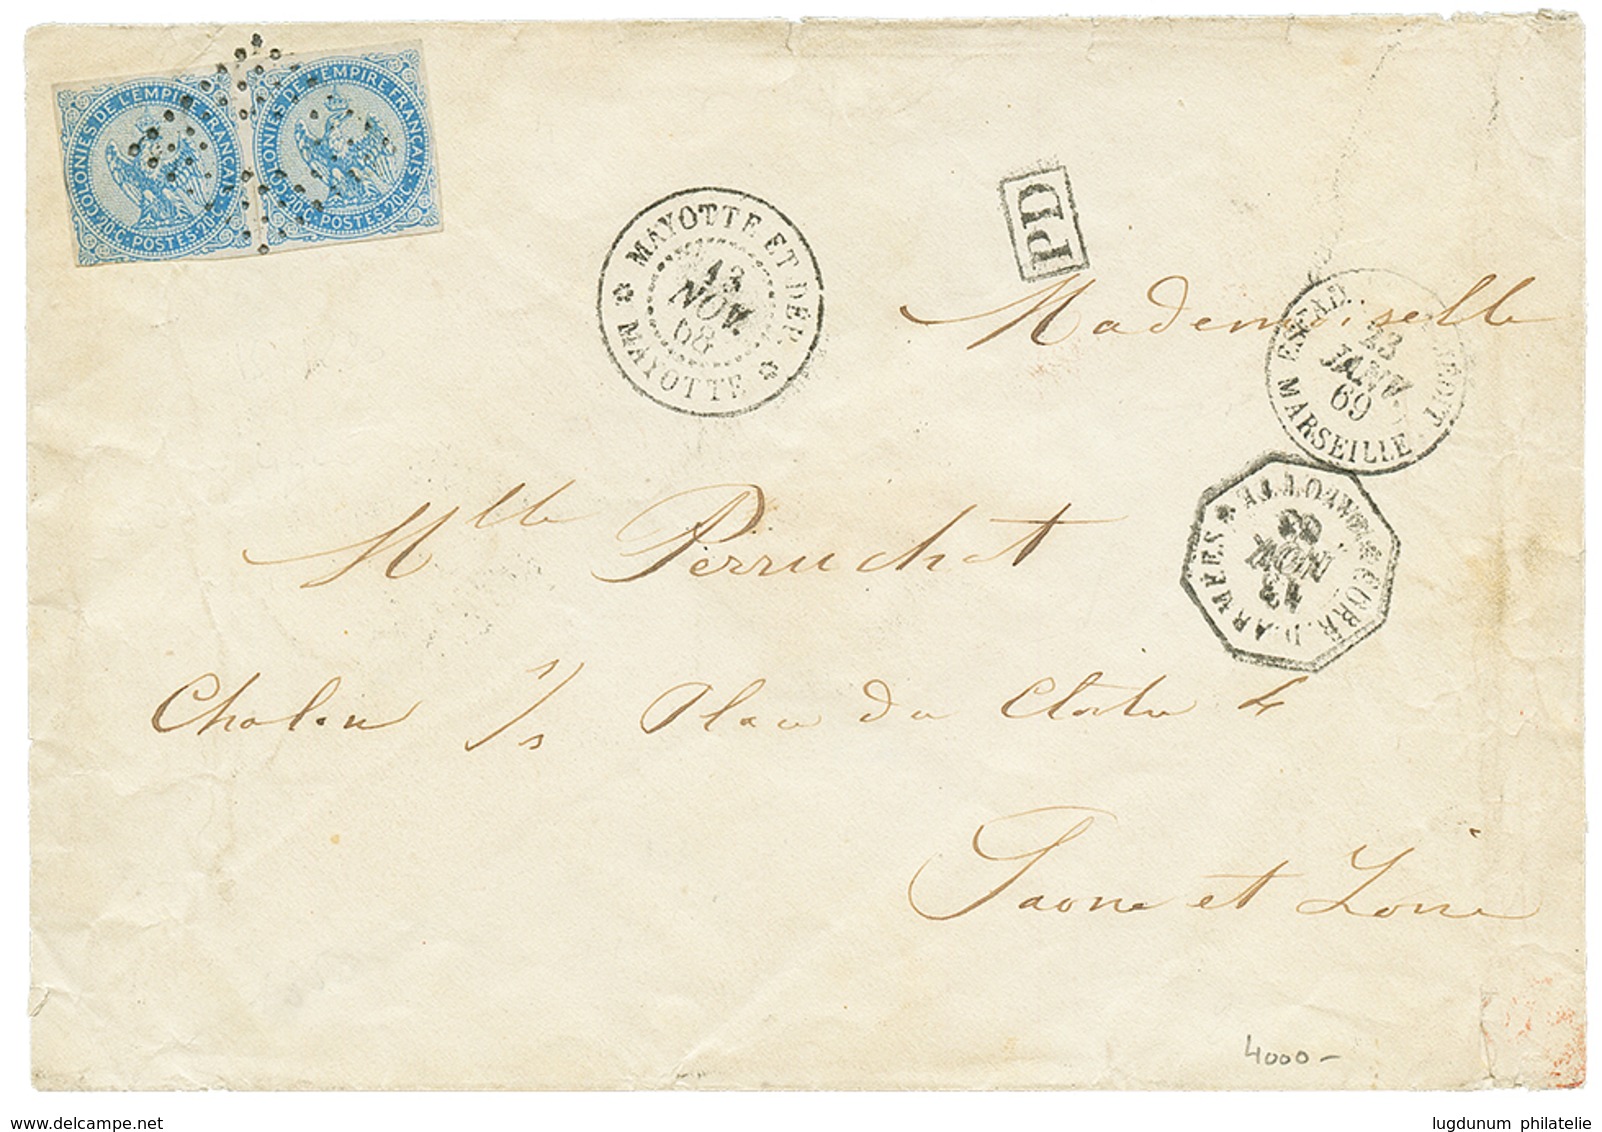 COLONIES DE L'EMPIRE FRANÇAIS
20.C. POSTES 20.C.
COLONIES DE L'EMPIRE FRANÇAIS
20.C. POSTES 20.C.
MAYOTTE ET DÉP.
13
NOV.
68
MAYOTTE
PD
Mademoiselle
23
JANV.
69
MARSEILLE
Mlle Perruchat
MAYOTTE
CORR. D. ARMÉES
13
NOV.
68
Chalon s/s Place du Cloître 4
Saone et Loire
4000-
delcampe.net
lugdunum philatelie